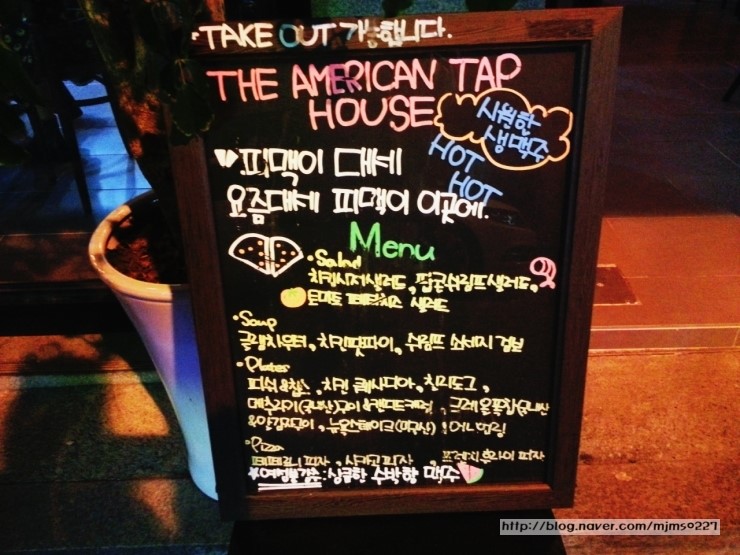 TAKE OUT 가능합니다.
THE AMERICAN TAP
HOUSE
시원한
생맥주
HOT
HOT
피맥이 대세
요즘대세 피맥이 이곳에.
Menu
·Salad
치킨시저샐러드, 팝콘쉬림프샐러드,
토마도 페타치즈 샐러드
·Soup
클램차우더, 치킨팟파이, 쉬림프 소세지 검보
·Plates
피쉬&칩스, 치킨 퀘사디아, 칠리도그,
메추리기(국내산)구이&
뉴욕스테이크(미국산), 어니언링
·Pizza
페페로니 피자, 시카고피자, 피자
싱큼한 수박향 맥주
http://blog.naver.com/mjmso227